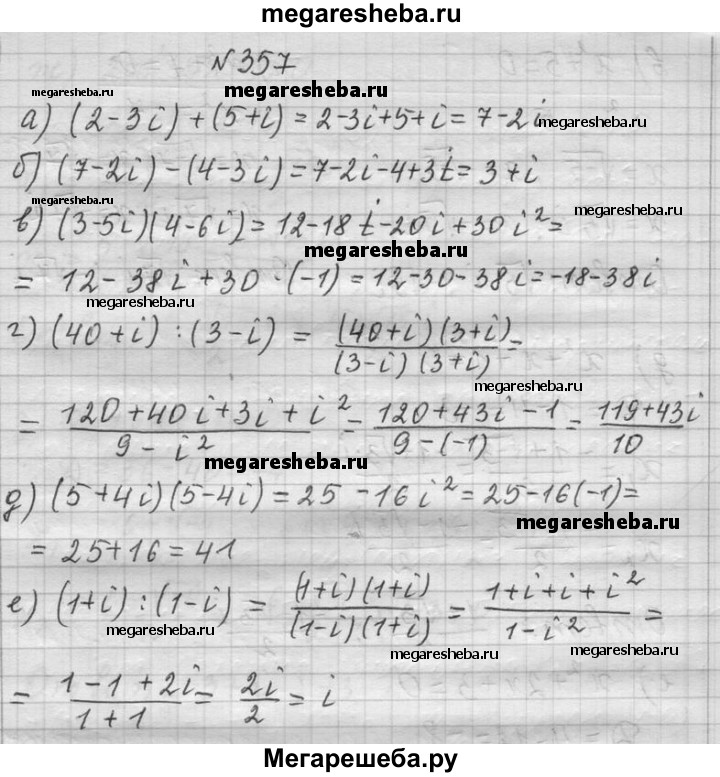 megaresheba.ru
N 357
megaresheba.ru
megaresheba.ru
а) (2-3i)+(5+i)=2-3i+5+i=7-2i
megaresheba.ru
б) (7-2i)-(4-3i)=7-2i-4+3i=3+i
в) (3-5i)(4-6i)=12-18i-20i+30i²=
megaresheba.ru
megaresheba.ru
= 12-38i+30·(-1)=12-30-38i=-18-38i
megaresheba.ru
г) (40+i):(3-i) = (40+i)(3+i)/(3-i)(3+i) =
megaresheba.ru
= 120+40i+3i+i²/9-i² = 120+43i-1/9-(-1) = 119+43i/10
megaresheba.ru
д) (5+4i)(5-4i)=25-16i²=25-16(-1)=
megaresheba.ru
= 25+16=41
е) (1+i):(1-i) = (1+i)(1+i)/(1-i)(1+i) = 1+i+i+i²/1-i² =
megaresheba.ru
megaresheba.ru
megaresheba.ru
= 1-1+2i/1+1 = 2i/2 = i
Мегарешеба.ру